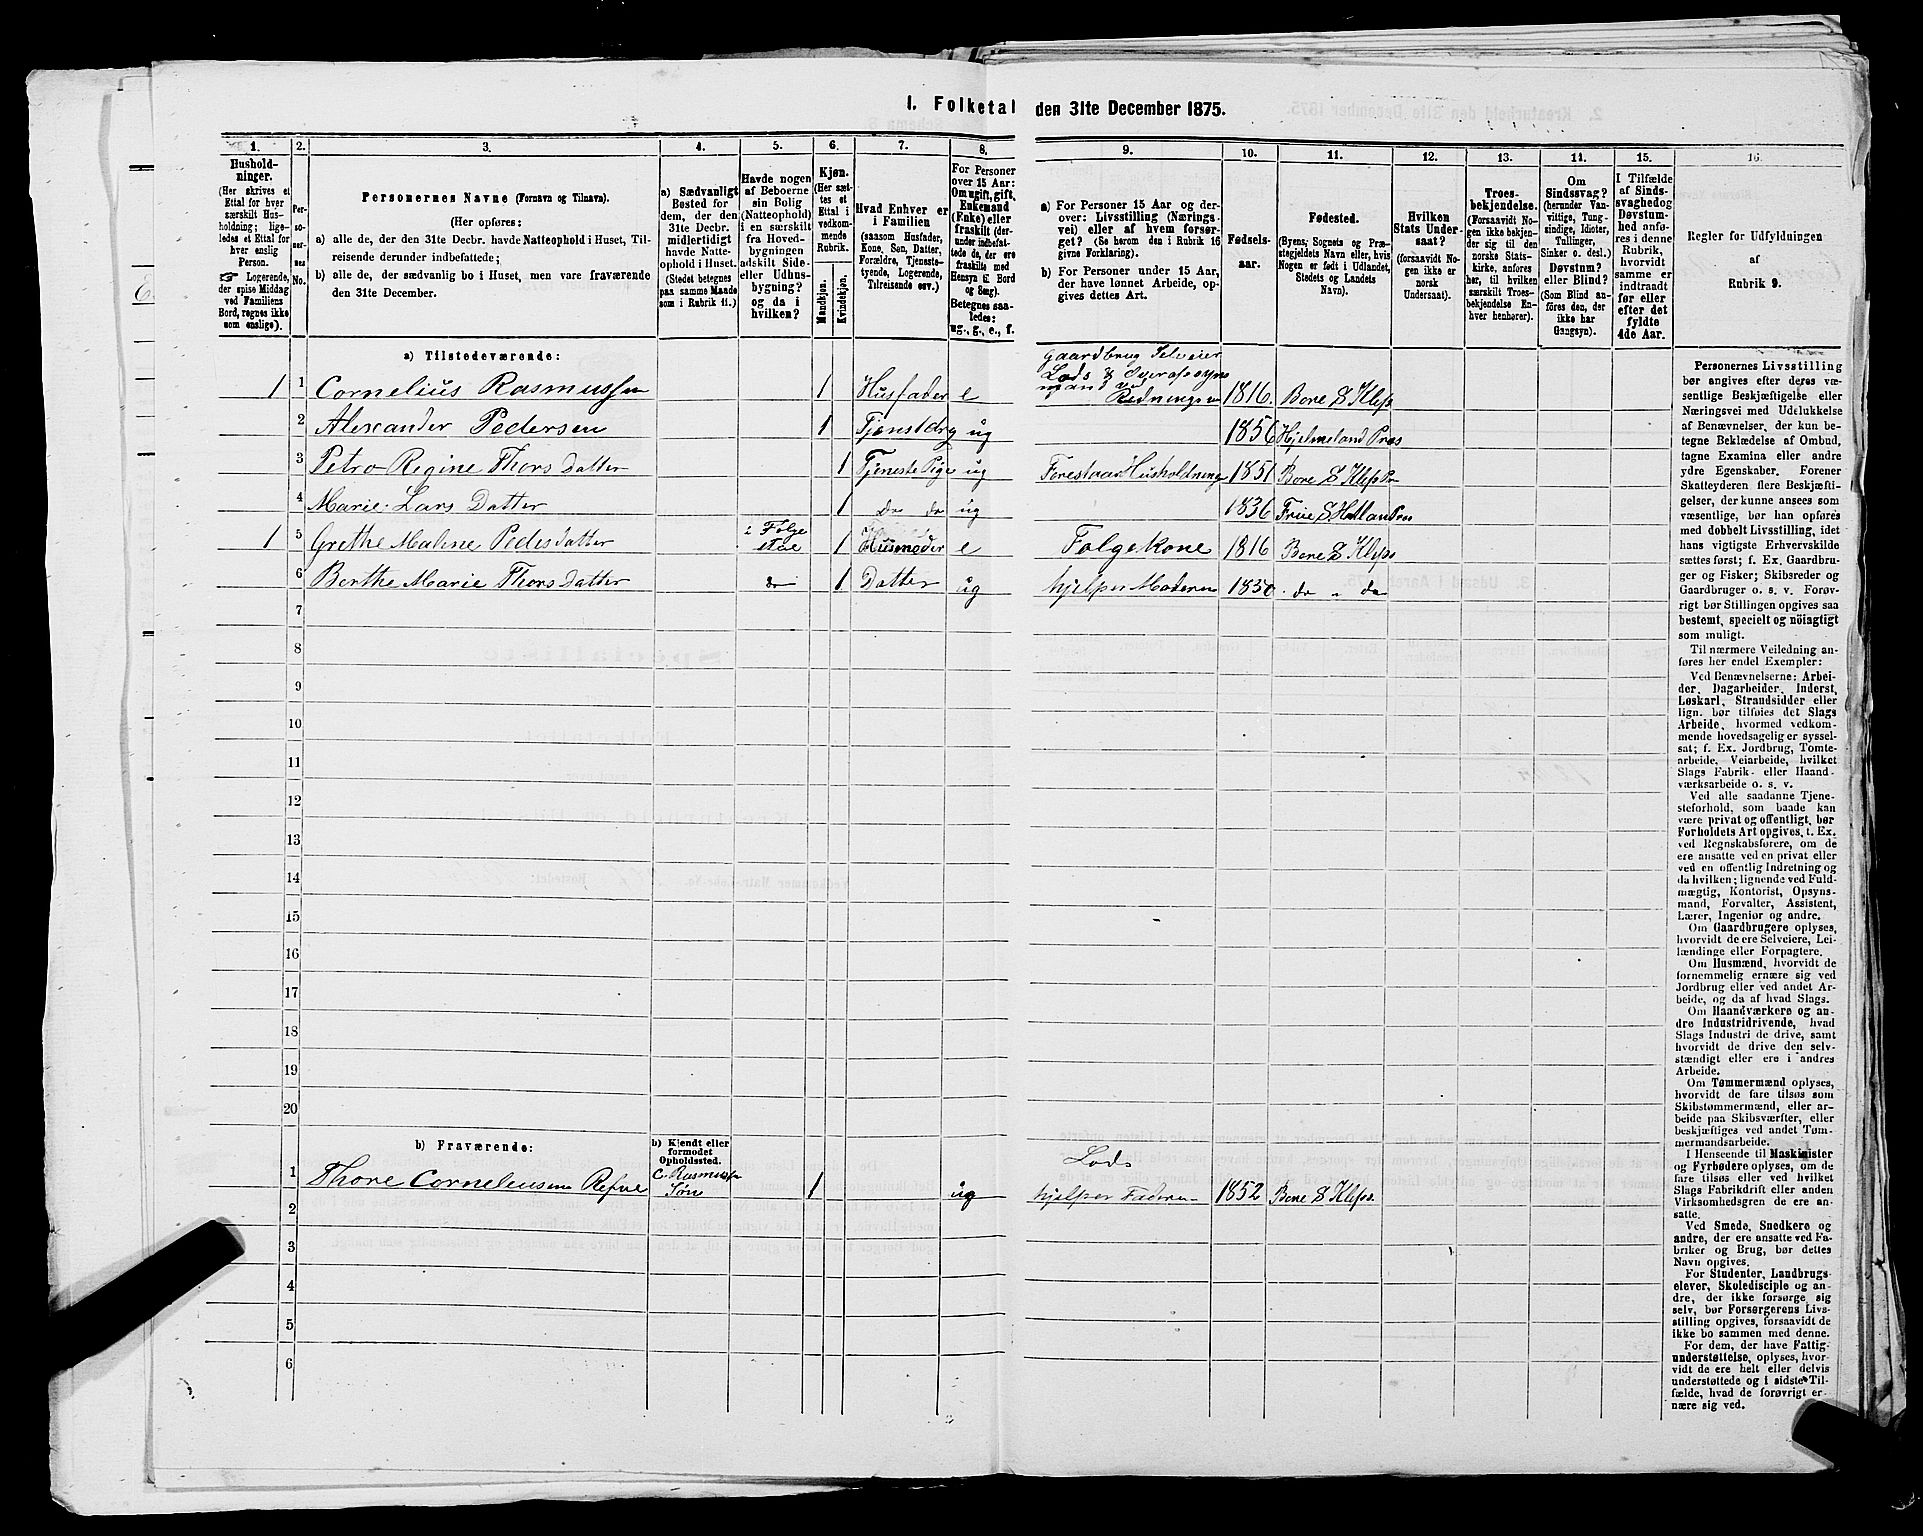 1. Folketal den 31te December 1875.
1. 2. 3. 4. 5. 6. 7. 8. 9. 10. 11. 12. 13. 14. 15. 16.
Hushold-
ninger.
(Her skrives et
Ettal for hver
særskilt Hus-
holdning; lige-
ledes et Ettal for
hver enslig
Person.
☞ Logerende,
der spise Middag
ved Familiens
Bord, regnes ikke
som enslige).
Per-
so-
ner-
nes
No.
Personernes Navne (Fornavn og Tilnavn).
(Her opføres:
a) alle de, der den 31te Decbr. havde Natteophold i Huset, Til-
reisende derunder indbefattede;
b) alle de, der sædvanlig bo i Huset, men vare fraværende
den 31te December.
a) Sædvanligt
Bosted for
dem, der den
31te Decbr.
midlertidigt
havde Natte-
ophold i Huset.
(Stedet betegnes
paa samme Maade
som i Rubrik 11.)
Havde nogen
af Beboerne
sin Bolig
(Natteophold)
i en særskilt
fra Hoved-
bygningen
adskilt Side-
eller Udhus-
bygning?
og da i
hvilken?
Kjøn.
(Her sæt-
tes et
Ettal i
vedkom-
mende
Rubrik.
Mandkjøn.
Kvindekjøn.
Hvad Enhver er
i Familien
(saasom Husfader,
Kone, Søn, Datter,
Forældre, Tjeneste-
tyende, Logerende,
Tilreisende osv.)
For Personer
over 15 Aar:
Om ugift, gift,
Enkemand
(Enke) eller
fraskilt (der-
under indbefat-
tede de, der ere
fraskilte med
Hensyn til Bord
og Seng).
Betegnes saa-
ledes:
ug., g., e., f.
a) For Personer 15 Aar og der-
over: Livsstilling (Nærings-
vei) eller af hvem forsør-
get? (Se herom den i Rubrik 16
givne Forklaring).
b) For Personer under 15 Aar,
der have lønnet Arbeide, op-
gives dettes Art.
Fødsels-
aar.
Fødested.
(Byens, Sognets og Præ-
stegjeldets Navn eller, hvis
Nogen er født i Udlandet,
Stedets og Landets
Navn).
Hvilken
Stats Under-
saat?
(forsaavidt No-
gen ikke er
norsk
Undersaat).
Troes-
bekjendelse.
(Forsaavidt No-
gen ikke bekjen-
der sig til den
norske Stats-
kirke, anføres
her, til hvilken
særskilt Troes-
bekjendelse En-
hver henhører).
Om
Sindssvag?
(herunder Van-
vittige, Tung-
sindige, Idioter,
Tullinger,
Sinker o. desl.)
Døvstum?
eller Blind?
(Som Blind an-
føres den, der
ikke har
Gangsyn).
I Tilfælde
af Sinds-
svaghed og
Døvstum-
hed anføres
i denne
Rubrik,
hvorvidt
samme er
indtraadt
før eller
efter det
fyldte
4de Aar.
Regler for Udfyldningen
af
Rubrik 9.
a) Tilstedeværende:
1 1 Cornelius Rasmussen 1 Husfader e Gaardbrug Selveier Lods & 1816. Bore S Klep
2 Alexander Pedersen 1 ug 1856 Hjelmeland Præs
3 Petro Regine Thors Datter 1 Tjeneste Pige ug Forestaar Husholdningen 1851 Bore S Klep Pr
4 Marie Lars Datter 1 do do ug 1836
1 5 Grethe Malene Peders Datter i Folge 1 Husmoder e Folgekone 1816 Bore S Klep
6 Berthe Marie Thors Datter do 1 Datter ug hjelper Moderen 1850. do " do
7
8
9
10
11
12
13
14
15
16
17
18
19
20
b) Fraværende:
b) Kjendt eller
formodet
Opholdssted.
1 Thore Corneliusen Refve C. Rasmussen Søn 1 ug Lods hjelper Faderen 1852 Bore S Klep.
2
3
4
5
6
Personernes Livsstilling
bør angives efter deres væ-
sentlige Beskjæftigelse eller
Næringsvei med Udelukkelse
af Benævnelser, der kun be-
tegne Beklædelse af Ombud,
tagne Examina eller andre
ydre Egenskaber. Forener
Skatteyderen flere Beskjæfti-
gelser, der kunne ansees som
væsentlige, bør han opføres
med dobbelt Livsstilling, idet
hans vigtigste Erhvervskilde
sættes først; f. Ex. Gaardbru-
ger og Fisker; Skibsreder og
Gaardbruger o. s. v. Forøv-
rigt bør Stillingen opgives saa
bestemt, specielt og nöiagtigt
som muligt.
Til nærmere Veiledning an-
føres her endel Exempler:
Ved Benævnelserne: Arbei-
der, Dagarbeider, Inderst,
Løskarl, Strandsidder eller
lign. bør tilføies det Slags
Arbeide, hvormed vedkom-
mende hovedsagelig er syssel-
sat; f. Ex. Jordbrug, Tomte-
arbeide, Veiarbeide, hvilket
Slags Fabrik- eller Haand-
værksarbeide o. s. v.
Ved alle saadanne Tjene-
steforhold, som baade kan
være privat og offentligt, bør
Forholdets Art opgives, t. Ex.
ved Regnskabsførere, om de
ere ansatte ved en privat eller
ved en offentlig Indretning og
da hvilken; lignende ved Fuld-
mægtig, Kontorist, Opsyns-
mand, Forvalter, Assistent,
Lærer, Ingeniør og andre.
Om Gaardbrugere oplyses,
hvorvidt de ere Selveiere, Lei-
lændinge eller Forpagtere.
Om Husmænd, hvorvidt de
fornemmelig ernære sig ved
Jordbrug eller ved andet Ar-
beide, og da af hvad Slags.
Om Haandværkere og an-
dre Industridrivende, hvad
Slags Industri de drive, samt
hvorvidt de drive den selv-
stændigt eller ere i andres
Arbeide.
Om Tømmermænd oplyses,
hvorvidt de fare tilsøs som
Skibstømmermænd, eller ar-
beide paa Skibsværfter, eller
beskjæftiges ved andet Tøm-
mermandsarbeide.
I Henseende til Maskinister
og Fyrbødere oplyses, om de
fare tilsøs eller ved hvilket
Slags Fabrikdrift eller anden
Virksomhedsgren de ere an-
satte.
Ved Smede, Snedkere og
andre, der ere ansatte ved Fa-
briker og Brug, bør dettes
Navn opgives.
For Studenter, Landbrugs-
elever, Skoledisciple og an-
dre, der ikke forsørge sig
selv, bør Forsørgerens Livs-
stilling opgives, forsaavidt de
ikke bo sammen med denne.
For dem, der have Fattig-
understøttelse, oplyses, hvor-
vidt de ere helt eller delvis
understøttede og i sidste Til-
fælde, hvad de forøvrigt er-
nære sig ved.